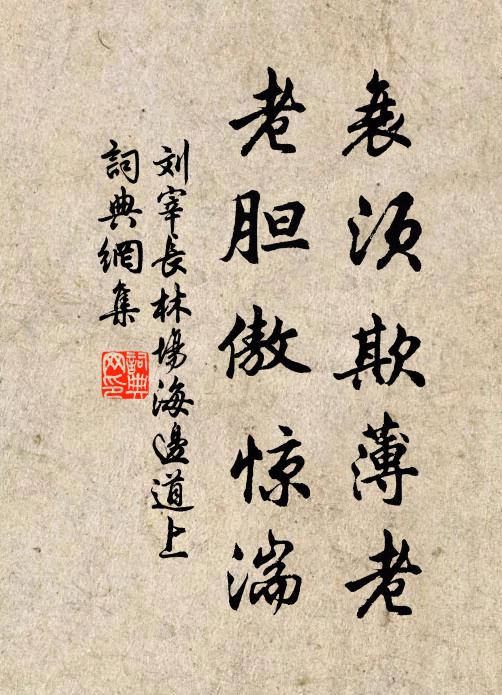 衰须欺薄老
老胆傲惊湍
刘宰長林場海邊道上
詞典網集
詞典网印